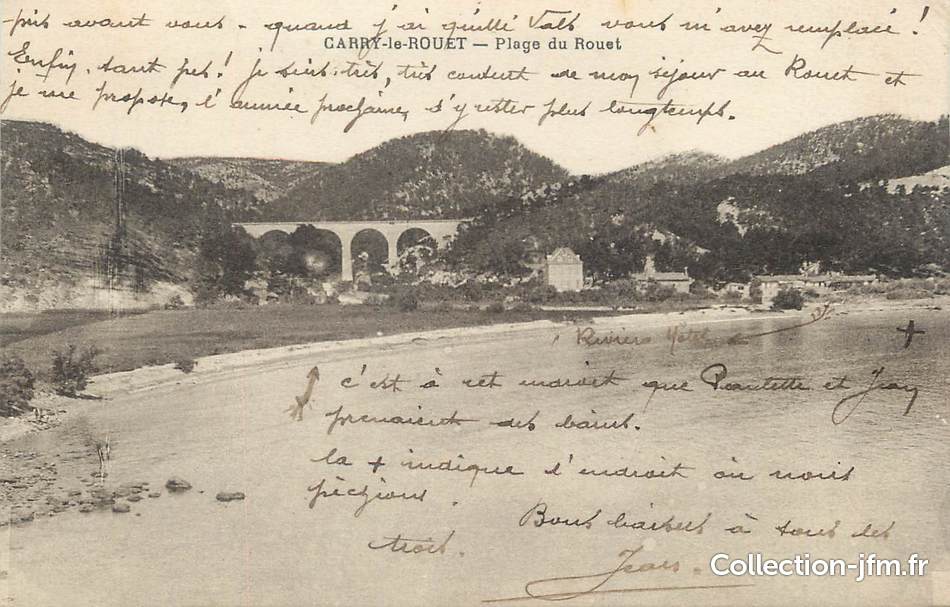 pris avant vous - quand j'ai quitté Vals vous m'avez remplacé!
CARRY-le-ROUET — Plage du Rouet
Enfin, tant pis! je suis très, très content de mon séjour au Rouet et
je me propose, l'année prochaine, d'y rester plus longtemps.
Riviera Hotel
+
c'est à cet endroit que Paulette et Jean
prenaient des bains.
la + indique l'endroit où nous
pêchions.
Bons baisers à tous les
trois.
Jean.
Collection-jfm.fr